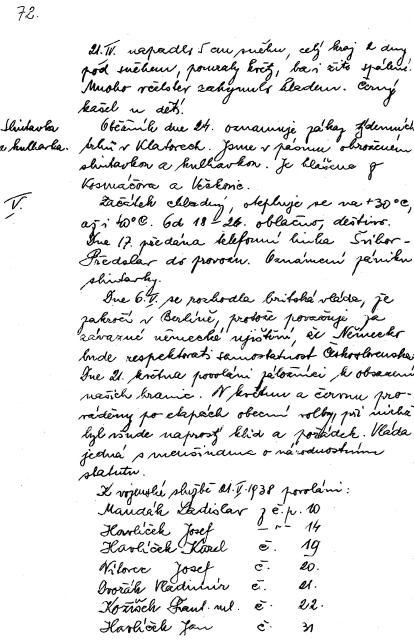 72.
21.IV. napadlo 5 cm sněhu, celý kraj 2 dny
pod sněhem, pomrzly květy, ba i žito spálené.
Mnoho včelstev zahynulo hladem. Černý
kašel u dětí.
Slintavka
a kulhavka.
Oběžník dne 24. oznamuje zákaz týdenních
trhů v Klatovech. Jsme v pásmu ohroženém
slintavkou a kulhavkou. Je hlášena z
Kosmáčova a Věckovic.
V.
Začátek chladný, otepluje se na +30°C,
až i 40°C. Od 18–26. oblačno, deštivo.
Dne 17. předána telefonní linka Švihov–
Předslav do provozu. Oznámení zániku
slintavky.
Dne 6.V. se rozhodla britská vláda, že
zakročí v Berlíně, protože považuje za
závazné německé ujištění, že Německo
bude respektovati samostatnost Československa.
Dne 21. května povoláni záložníci k obsazení
našich hranic. V květnu a červnu pro-
váděny po etapách obecní volby, při nichž
byl všude naprostý klid a pořádek. Vláda
jedná s menšinama o národnostním
statutu.
K vojenské službě 21.V.1938 povoláni:
Mandák Ladislav z č.p. 10
Havlíček Josef — " — 14
Havlíček Karel č. 19
Josef č. 20.
Dvořák Vladimír č. 21.
Frant. ml. č. 22.
Havlíček Jan č. 31